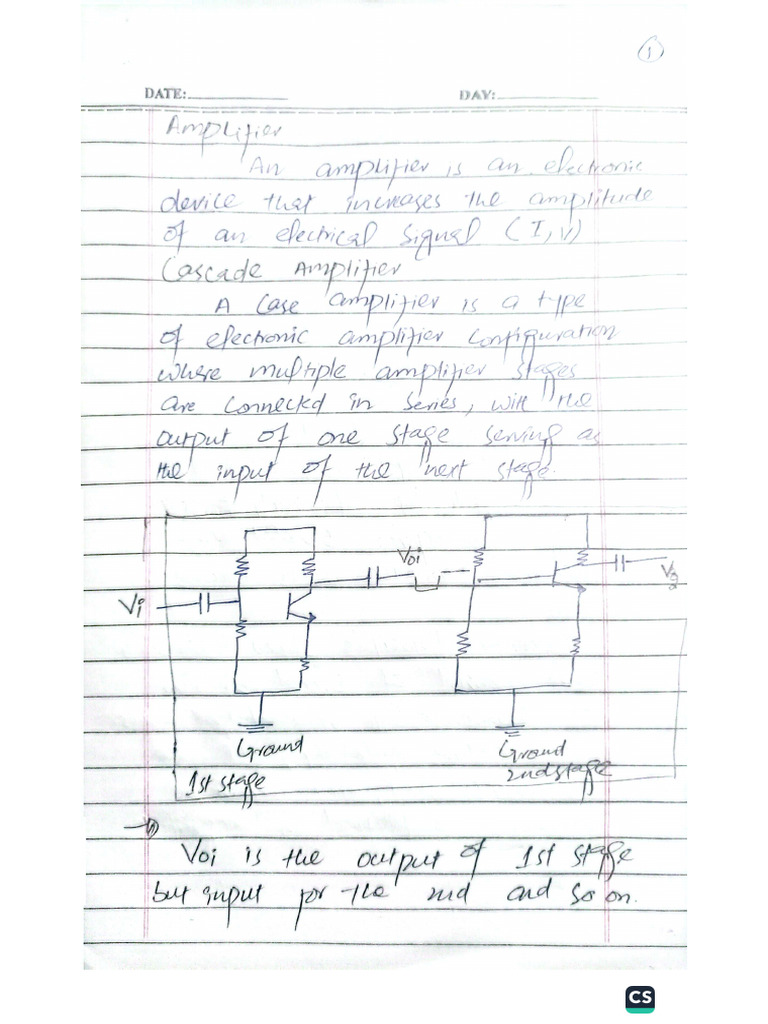 1
DATE: DAY:
Amplifier
An amplifier is an electronic
device that increases the amplitude
of an electrical signal (I,V)
Cascade Amplifier
A Case amplifier is a type
of electronic amplifier configuration
where multiple amplifier stages
are connected in series, with the
output of one stage serving as
the input of the next stage.
Voi
Vi
Ground
Ground
1st stage
2nd stage
Voi is the output of 1st stage
but input for the 2nd and so on.
CS